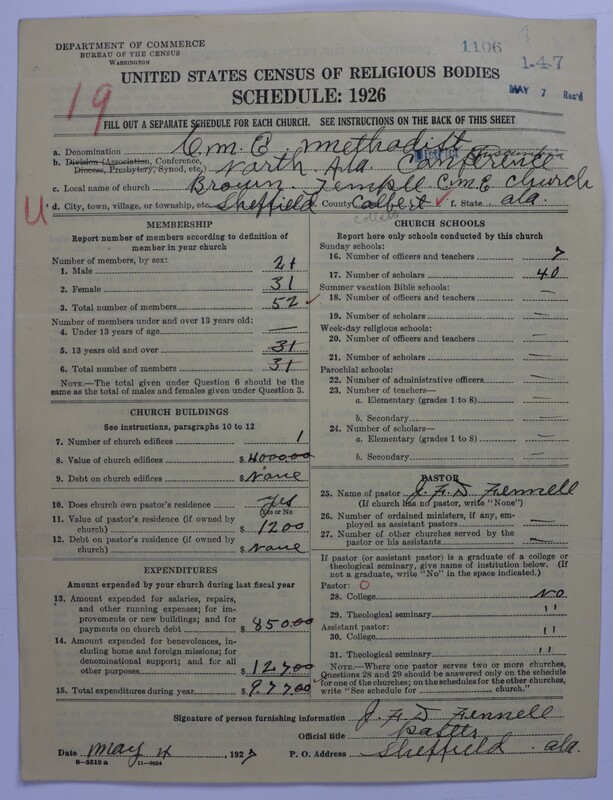 DEPARTMENT OF COMMERCE
BUREAU OF THE CENSUS
WASHINGTON
1106
1-47
MAY 7 Rec'd
UNITED STATES CENSUS OF RELIGIOUS BODIES
SCHEDULE: 1926
19
FILL OUT A SEPARATE SCHEDULE FOR EACH CHURCH. SEE INSTRUCTIONS ON THE BACK OF THIS SHEET
a. Denomination C.M.E. Methodist
b. Division (Association, Conference, Diocese, Presbytery, Synod, etc.) North Ala. Conference
c. Local name of church Brown Temple C.M.E Church
U d. City, town, village, or township, etc. Sheffield County Colbert f. State Ala.
MEMBERSHIP
Report number of members according to definition of
member in your church
Number of members, by sex:
1. Male 21
2. Female 31
3. Total number of members 52
Number of members under and over 13 years old:
4. Under 13 years of age —
5. 13 years old and over 31
6. Total number of members 31
NOTE.—The total given under Question 6 should be the
same as the total of males and females given under Question 3.
CHURCH BUILDINGS
See instructions, paragraphs 10 to 12
7. Number of church edifices 1
8. Value of church edifices $4000.00
9. Debt on church edifices $None
10. Does church own pastor's residence Yes
Yes or No
11. Value of pastor's residence (if owned by
church) $1200
12. Debt on pastor's residence (if owned by
church) $None
EXPENDITURES
Amount expended by your church during last fiscal year
13. Amount expended for salaries, repairs,
and other running expenses; for im-
provements or new buildings; and for
payments on church debt $850.00
14. Amount expended for benevolences, in-
cluding home and foreign missions; for
denominational support; and for all
other purposes $127.00
15. Total expenditures during year $977.00
CHURCH SCHOOLS
Report here only schools conducted by this church
Sunday schools:
16. Number of officers and teachers 7
17. Number of scholars 40
Summer vacation Bible schools:
18. Number of officers and teachers —
19. Number of scholars —
Week-day religious schools:
20. Number of officers and teachers —
21. Number of scholars —
Parochial schools:
22. Number of administrative officers —
23. Number of teachers—
a. Elementary (grades 1 to 8) —
b. Secondary —
24. Number of scholars—
a. Elementary (grades 1 to 8) —
b. Secondary —
PASTOR
25. Name of pastor J. F. D Fennell
(If church has no pastor, write "None")
26. Number of ordained ministers, if any, em-
ployed as assistant pastors —
27. Number of other churches served by the
pastor or his assistants —
If pastor (or assistant pastor) is a graduate of a college or
theological seminary, give name of institution below. (If
not a graduate, write "No" in the space indicated.)
Pastor: O
28. College No
29. Theological seminary "
Assistant pastor:
30. College "
31. Theological seminary "
NOTE.—Where one pastor serves two or more churches,
Questions 28 and 29 should be answered only on the schedule
for one of the churches; on the schedules for the other churches,
write "See schedule for church."
Signature of person furnishing information J. F. D Fennell
Official title Pastor
Date May 4, 1927 P. O. Address Sheffield Ala.
8-5518 a 11-9024